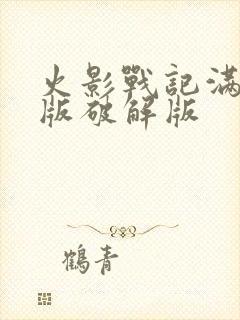 火影戰記滿
版破解版
鶴青